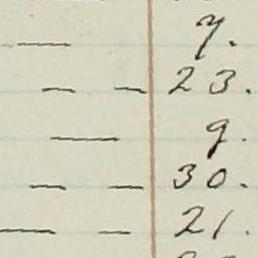 — 7.
— — 23.
— 9.
— — 30.
— — 21.